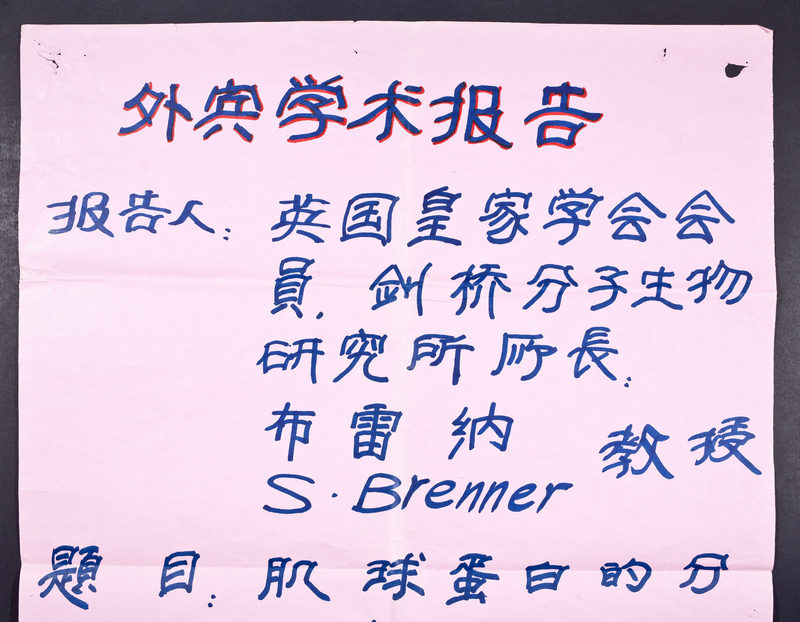 外宾学术报告
报告人: 英国皇家学会会
員,剑桥分子生物
研究所所長:
布雷纳 教授
S. Brenner
題目: 肌球蛋白的分